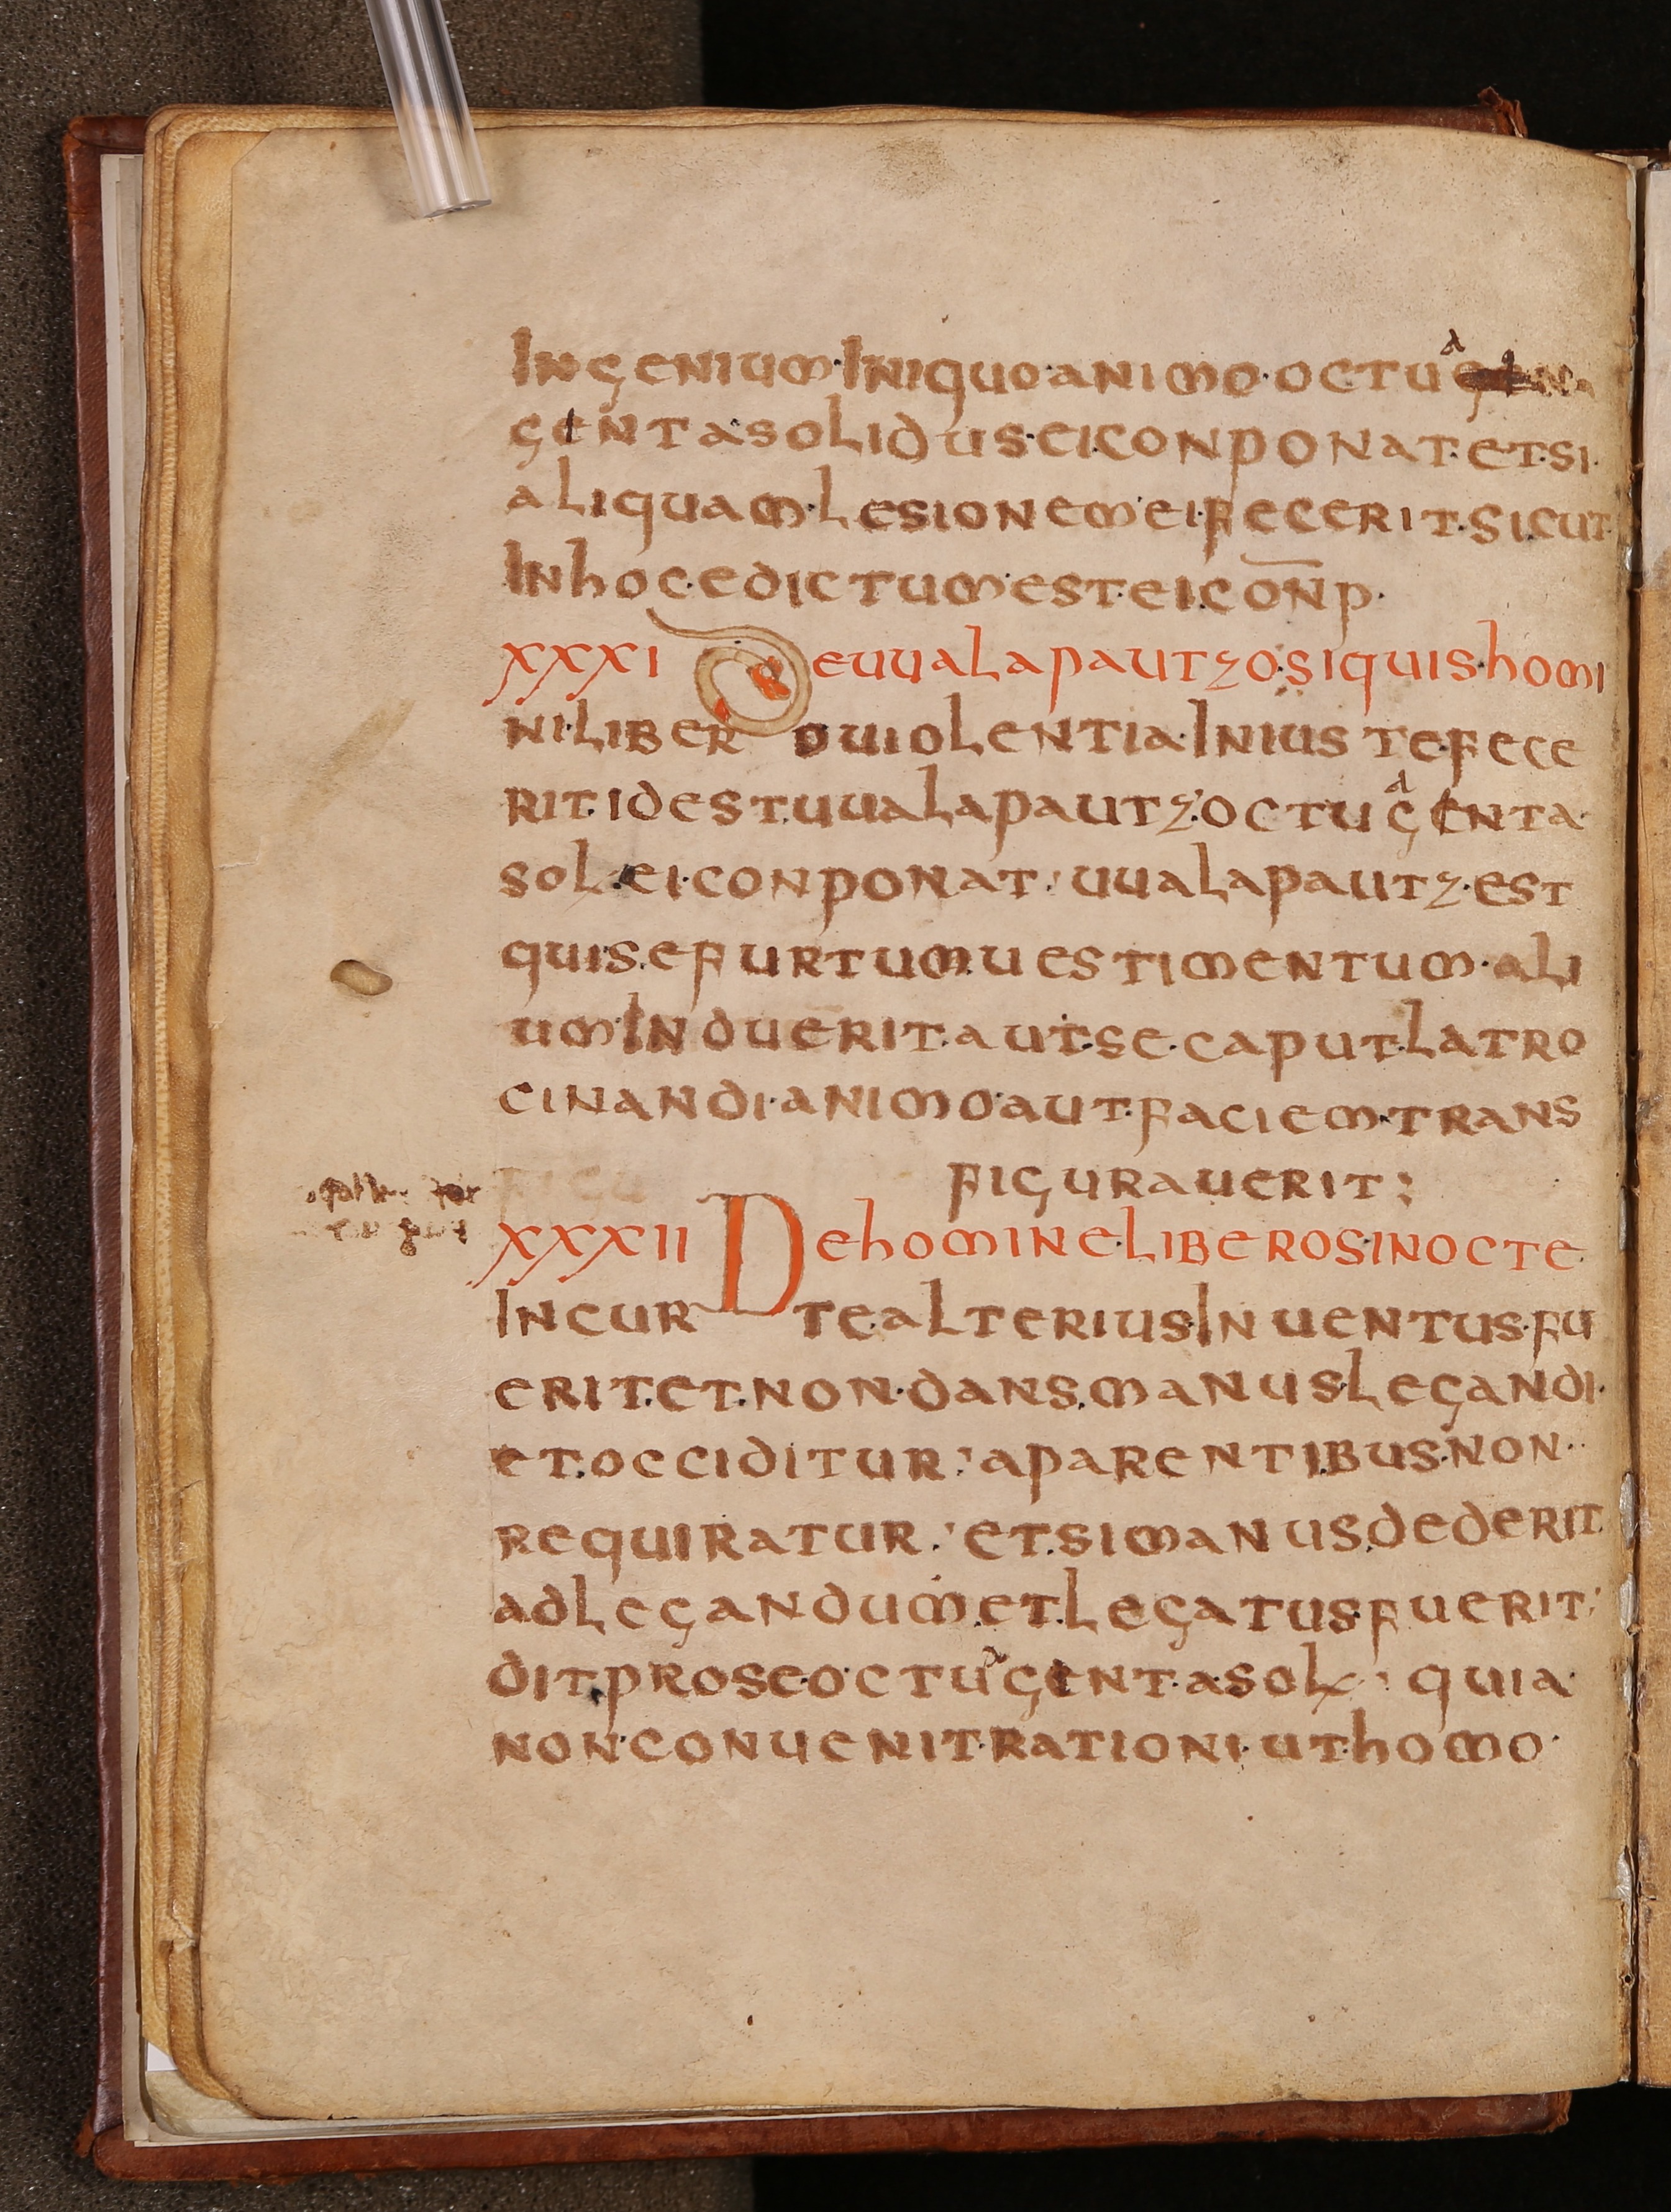 INGENIUM·INIQUO·ANIMO·OCTU
GENTASOLIDUS·EICONPONAT·ET·SI·
ALIQUAM·LESIONEMEIFECERIT·SICUT
INHOC·EDICTUMEST·EI·CON̅P·
XXXI DEUUALAPAUTZO·SIQUIS·HOMI
NI·LIBERO UIOLENTIA·INIUSTE·FECE
RIT·IDEST·UUALAPAUTZ·OCTUᵈGENTA·
SOL·EI·CONPONAT· UUALAPAUTZ·EST
QUI·SE·FURTUM·UESTIMENTUM·ALI
UM·INDUERIT·AUT·SE·CAPUT·LATRO
CINANDI·ANIMO·AUT·FACIEM·TRANS
FIGURAUERIT;
XXXII DEHOMINE·LIBEROSINOCTE
INCUR TEALTERIUSINUENTUS·FU
ERIT·ET·NON·DANS·MANUSLEGANDI·
ET·OCCIDITUR· APARENTIBUS·NON··
REQUIRATUR·' ET·SIMANUS·DEDERIT
ADLEGANDUM·ET·LEGATUS·FUERIT·
DIT·PROSE·OCTUᵈGENTASOL· QUIA·
NON·CONUENIT·RATIONI·UT·HOMO·